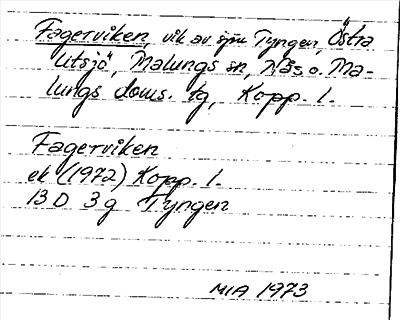 Fagerviken, vik av sjön Tyngen, Östra
Utsjö, Malungs sn, Näs o. Ma-
lungs doms. tg, Kopp. l.
Fagerviken
ek (1972) Kopp. l.
13 D 3 g Tyngen
MIA 1973